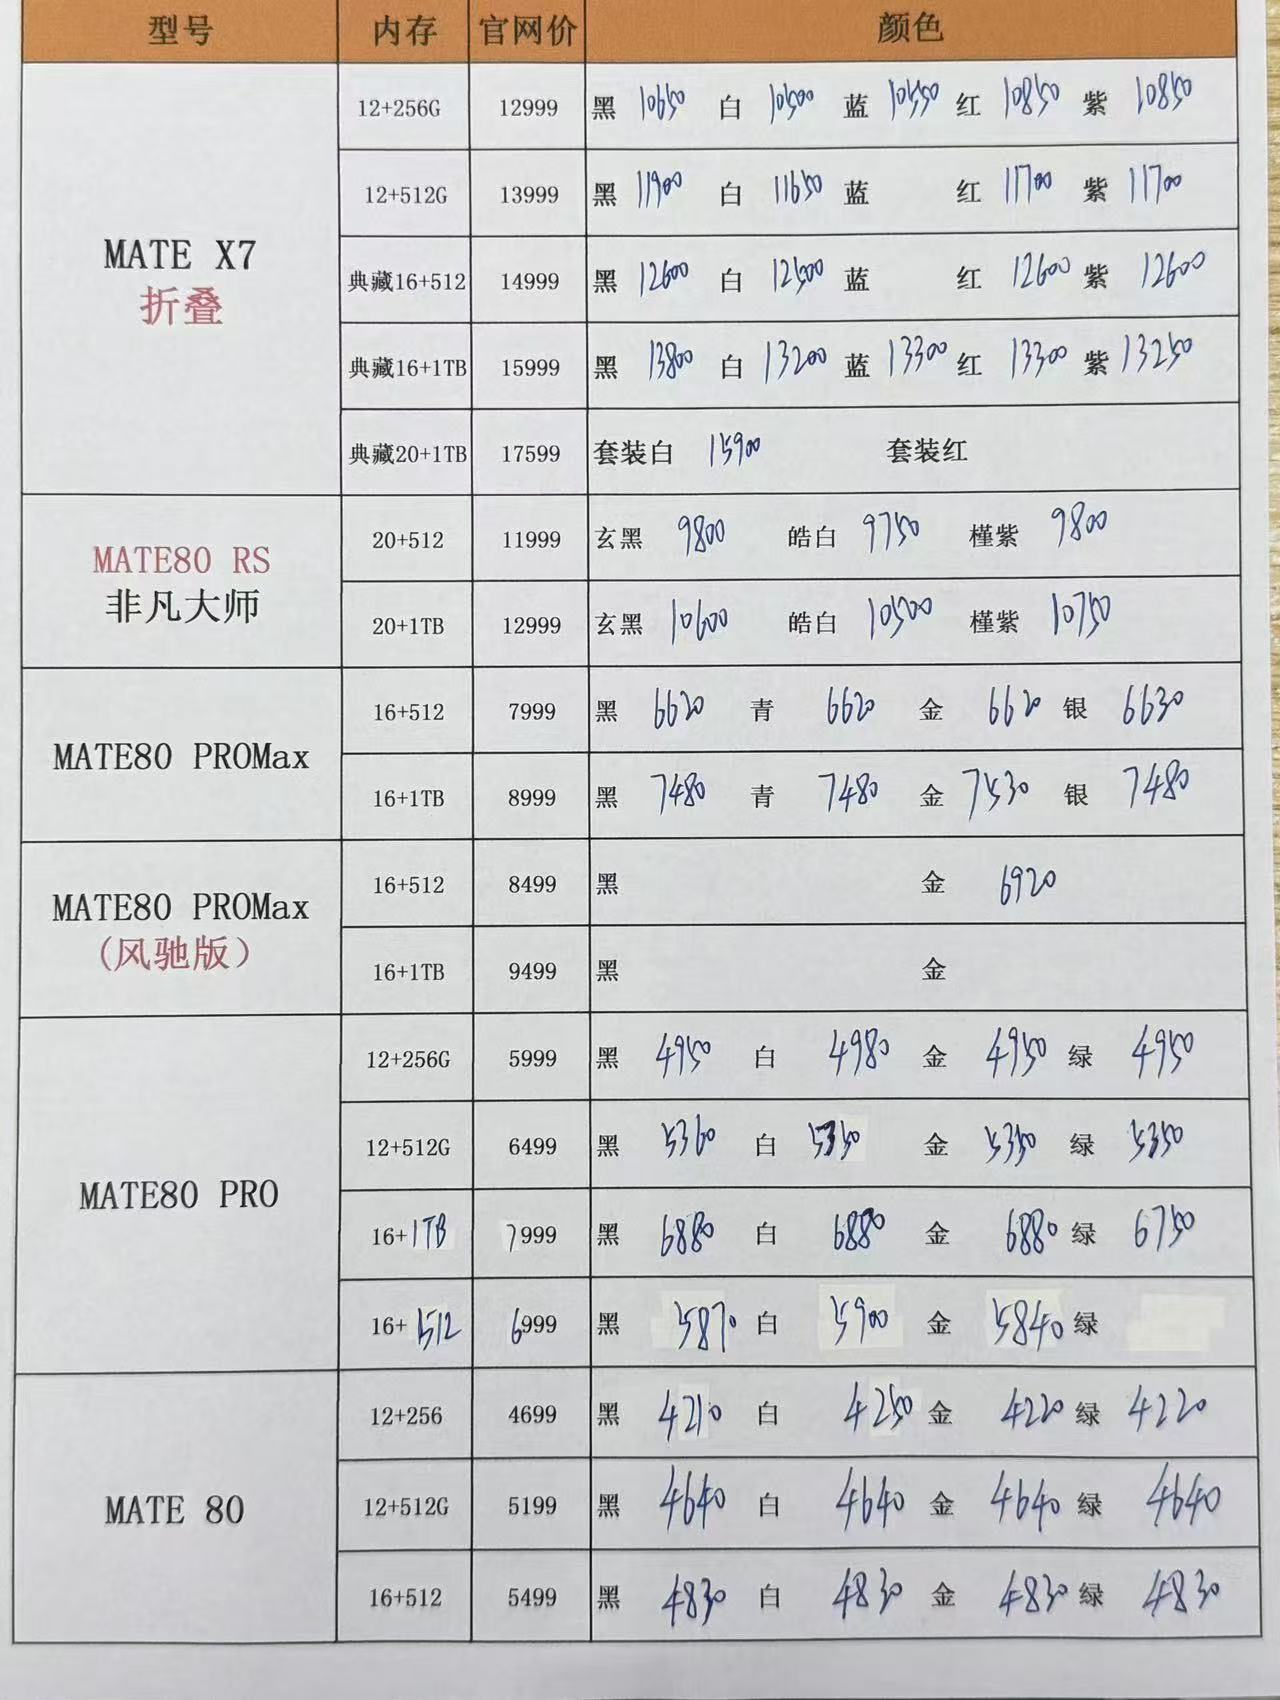 型号 内存 官网价 颜色
MATE X7
折叠
12+256G 12999 黑 10650 白 10500 蓝 10550 红 10850 紫 10850
12+512G 13999 黑 11900 白 11650 蓝 红 11700 紫 11700
典藏16+512 14999 黑 12600 白 12500 蓝 红 12600 紫 12600
典藏16+1TB 15999 黑 13800 白 13200 蓝 13300 红 13300 紫 13250
典藏20+1TB 17599 套装白 15900 套装红
MATE80 RS
非凡大师
20+512 11999 玄黑 9800 皓白 9750 槿紫 9800
20+1TB 12999 玄黑 10600 皓白 10500 槿紫 10750
MATE80 PROMax
16+512 7999 黑 6620 青 6620 金 6620 银 6630
16+1TB 8999 黑 7480 青 7480 金 7530 银 7480
MATE80 PROMax
(风驰版)
16+512 8499 黑 金 6920
16+1TB 9499 黑 金
MATE80 PRO
12+256G 5999 黑 4950 白 4980 金 4950 绿 4950
12+512G 6499 黑 5360 白 5350 金 5350 绿 5350
16+1TB 7999 黑 6880 白 6880 金 6880 绿 6750
16+512 6999 黑 5870 白 5900 金 5840 绿
MATE 80
12+256 4699 黑 4210 白 4250 金 4220 绿 4220
12+512G 5199 黑 4640 白 4640 金 4640 绿 4640
16+512 5499 黑 4830 白 4830 金 4830 绿 4830